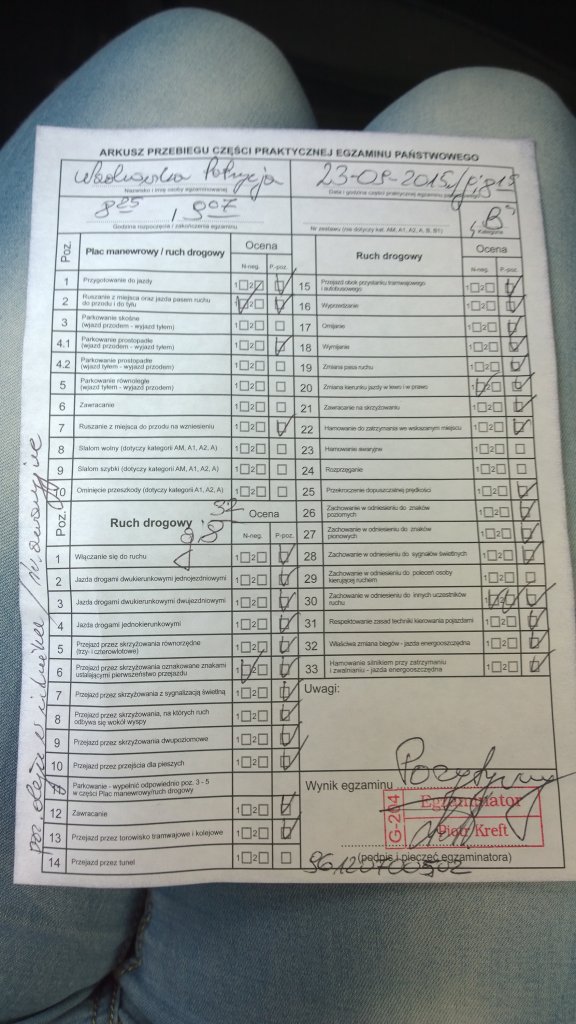 ARKUSZ PRZEBIEGU CZĘŚCI PRAKTYCZNEJ EGZAMINU PAŃSTWOWEGO
Patrycja
Nazwisko i imię osoby egzaminowanej
23-09-2015
Data i godzina części praktycznej egzaminu
907
Godzina rozpoczęcia / zakończenia egzaminu
Nr zestawu (nie dotyczy kat. AM, A1, A2, A, B, B1)
B
Kategoria
Poz.
Plac manewrowy / ruch drogowy
Ocena
N-neg. P-poz.
1 Przygotowanie do jazdy 1 2
2 Ruszanie z miejsca oraz jazda pasem ruchu
do przodu i do tyłu 1 2
3 Parkowanie skośne
(wjazd przodem - wyjazd tyłem) 1 2
4.1 Parkowanie prostopadłe
(wjazd przodem - wyjazd tyłem) 1 2
4.2 Parkowanie prostopadłe
(wjazd tyłem - wyjazd przodem) 1 2
5 Parkowanie równoległe
(wjazd tyłem - wyjazd przodem) 1 2
6 Zawracanie 1 2
7 Ruszanie z miejsca do przodu na wzniesieniu 1 2
8 Slalom wolny (dotyczy kategorii AM, A1, A2, A) 1 2
9 Slalom szybki (dotyczy kategorii AM, A1, A2, A) 1 2
10 Ominięcie przeszkody (dotyczy kategorii A1, A2, A) 1 2
Poz.
Ruch drogowy
Ocena
N-neg. P-poz.
1 Włączanie się do ruchu 1 2
2 Jazda drogami dwukierunkowymi jednojezdniowymi 1 2
3 Jazda drogami dwukierunkowymi dwujezdniowymi 1 2
4 Jazda drogami jednokierunkowymi 1 2
5 Przejazd przez skrzyżowania równorzędne
(trzy- i czterowlotowe) 1 2
6 Przejazd przez skrzyżowania oznakowane znakami
ustalającymi pierwszeństwo przejazdu 1 2
7 Przejazd przez skrzyżowania z sygnalizacją świetlną 1 2
8 Przejazd przez skrzyżowania, na których ruch
odbywa się wokół wyspy 1 2
9 Przejazd przez skrzyżowania dwupoziomowe 1 2
10 Przejazd przez przejścia dla pieszych 1 2
Parkowanie - wypełnić odpowiednio poz. 3 - 5
w części Plac manewrowy/ruch drogowy
12 Zawracanie 1 2
13 Przejazd przez torowisko tramwajowe i kolejowe 1 2
14 Przejazd przez tunel 1 2
Ruch drogowy
Ocena
N-neg. P-poz.
15 Przejazd obok przystanku tramwajowego
i autobusowego 1 2
16 Wyprzedzanie 1 2
17 Omijanie 1 2
18 Wymijanie 1 2
19 Zmiana pasa ruchu 1 2
20 Zmiana kierunku jazdy w lewo i w prawo 1 2
21 Zawracanie na skrzyżowaniu 1 2
22 Hamowanie do zatrzymania we wskazanym miejscu 1 2
23 Hamowanie awaryjne 1 2
24 Rozprzęganie 1 2
25 Przekroczenie dopuszczalnej prędkości 1 2
26 Zachowanie w odniesieniu do znaków
poziomych 1 2
27 Zachowanie w odniesieniu do znaków
pionowych 1 2
28 Zachowanie w odniesieniu do sygnałów świetlnych 1 2
29 Zachowanie w odniesieniu do poleceń osoby
kierującej ruchem 1 2
30 Zachowanie w odniesieniu do innych uczestników
ruchu 1 2
31 Respektowanie zasad techniki kierowania pojazdami 1 2
32 Właściwa zmiana biegów - jazda energooszczędna 1 2
33 Hamowanie silnikiem przy zatrzymaniu
i zwalnianiu - jazda energooszczędna 1 2
Uwagi:
Wynik egzaminu
Pozytywny
G-204
Egzaminator
Piotr Kreft
(podpis i pieczęć egzaminatora)
96120700502